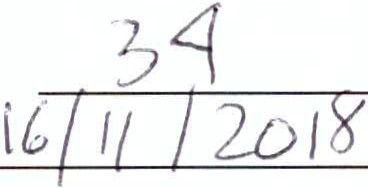 34
16/11/2018